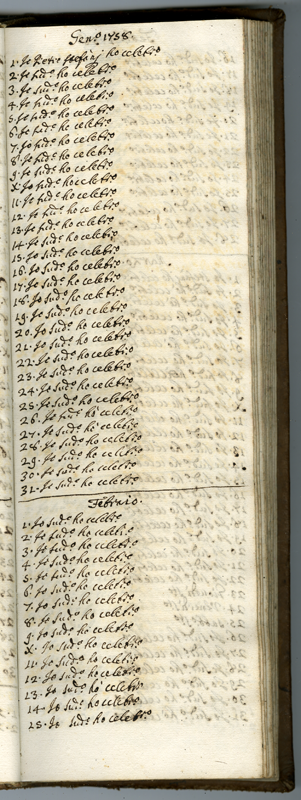 Gen.º 1758.
1. Io Pietro Stefanj ho celebro
2. Io sud.º ho celebro
3. Io sud.º ho celebro
4. Io sud.º ho celebro
5. Io sud.º ho celebro
6. Io sud.º ho celebro
7. Io sud.º ho celebro
8. Io sud.º ho celebro
9. Io sud.º ho celebro
X. Io sud.º ho celebro
11. Io sud.º ho celebro
12. Io sud.º ho celebro
13. Io sud.º ho celebro
14. Io sud.º ho celebro
15. Io sud.º ho celebro
16. Io sud.º ho celebro
17. Io sud.º ho celebro
18. Io sud.º ho celebro
19. Io sud.º ho celebro
20. Io sud.º ho celebro
21. Io sud.º ho celebro
22. Io sud.º ho celebro
23. Io sud.º ho celebro
24. Io sud.º ho celebro
25. Io sud.º ho celebro
26. Io sud.º ho celebro
27. Io sud.º ho celebro
28. Io sud.º ho celebro
29. Io sud.º ho celebro
30. Io sud.º ho celebro
31. Io sud.º ho celebro
Febraio.
1. Io sud.º ho celebro
2. Io sud.º ho celebro
3. Io sud.º ho celebro
4. Io sud.º ho celebro
5. Io sud.º ho celebro
6. Io sud.º ho celebro
7. Io sud.º ho celebro
8. Io sud.º ho celebro
9. Io sud.º ho celebro
X. Io sud.º ho celebro
11. Io sud.º ho celebro
12. Io sud.º ho celebro
13. Io sud.º ho celebro
14. Io sud.º ho celebro
15. Io sud.º ho celebro